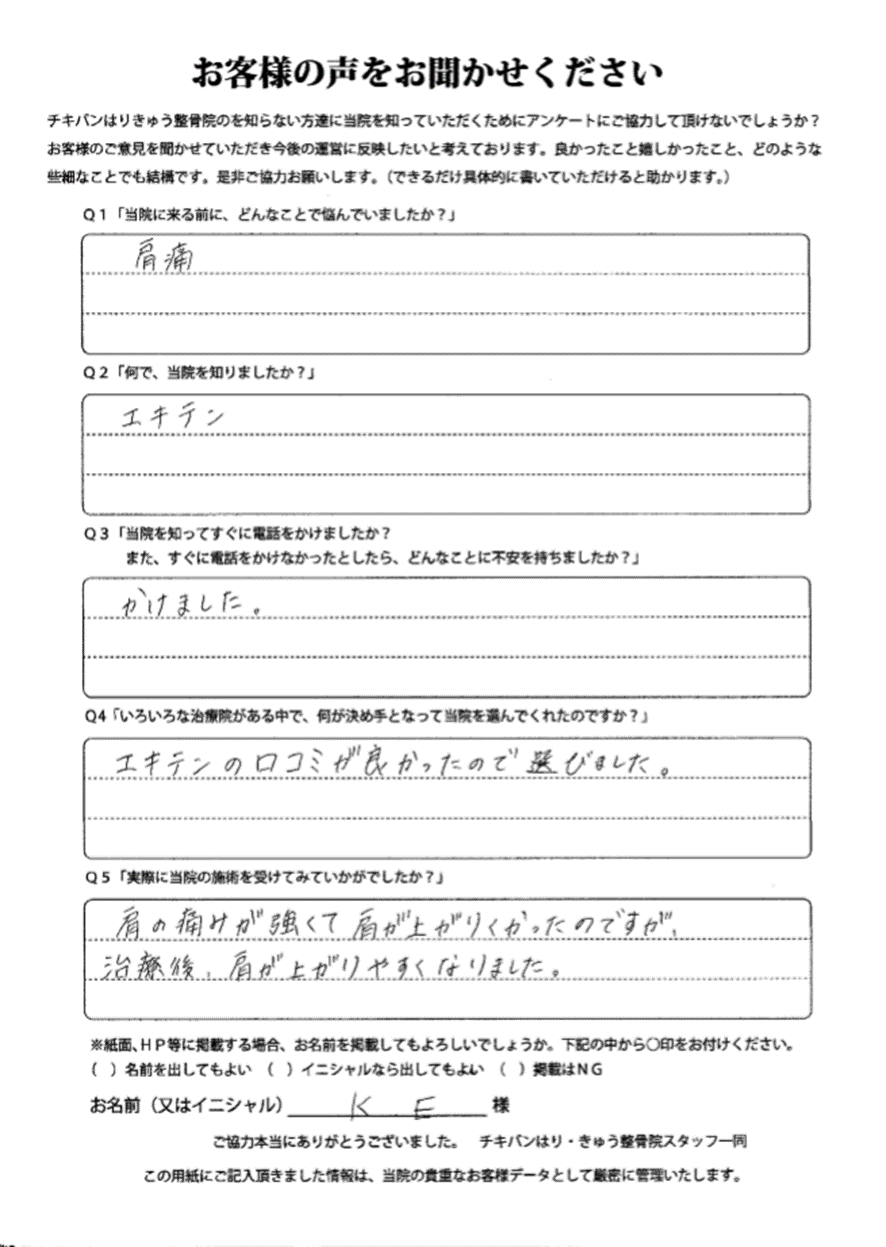 お客様の声をお聞かせください
チキバンはりきゅう整骨院のを知らない方達に当院を知っていただくためにアンケートにご協力して頂けないでしょうか？
お客様のご意見を聞かせていただき今後の運営に反映したいと考えております。良かったこと嬉しかったこと、どのような
些細なことでも結構です。是非ご協力お願いします。（できるだけ具体的に書いていただけると助かります。）
Ｑ１「当院に来る前に、どんなことで悩んでいましたか？」
肩痛
Ｑ２「何で、当院を知りましたか？」
エキテン
Ｑ３「当院を知ってすぐに電話をかけましたか？
また、すぐに電話をかけなかったとしたら、どんなことに不安を持ちましたか？」
かけました。
Q4「いろいろな治療院がある中で、何が決め手となって当院を選んでくれたのですか？」
エキテンの口コミが良かったので選びました。
Ｑ５「実際に当院の施術を受けてみていかがでしたか？」
肩の痛みが強くて肩が上がりくかったのですが、
治療後、肩が上がりやすくなりました。
※紙面、ＨＰ等に掲載する場合、お名前を掲載してもよろしいでしょうか。下記の中から〇印をお付けください。
（ ）名前を出してもよい （ ）イニシャルなら出してもよい （ ）掲載はＮＧ
お名前（又はイニシャル） K E 様
ご協力本当にありがとうございました。 チキバンはり・きゅう整骨院スタッフ一同
この用紙にご記入頂きました情報は、当院の貴重なお客様データとして厳密に管理いたします。